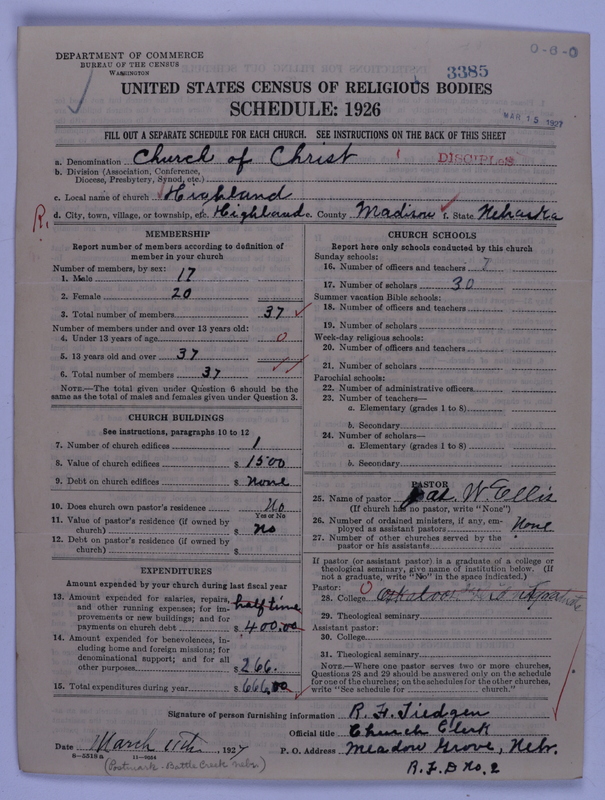 DEPARTMENT OF COMMERCE
BUREAU OF THE CENSUS
WASHINGTON
0-8-0
3385
UNITED STATES CENSUS OF RELIGIOUS BODIES
SCHEDULE: 1926
MAR 15 1927
FILL OUT A SEPARATE SCHEDULE FOR EACH CHURCH. SEE INSTRUCTIONS ON THE BACK OF THIS SHEET
a. Denomination Church of Christ DISCIPLES
b. Division (Association, Conference, Diocese, Presbytery, Synod, etc.)
c. Local name of church Highland
R. d. City, town, village, or township, etc. Highland e. County Madison f. State Nebraska
MEMBERSHIP
Report number of members according to definition of member in your church
Number of members, by sex:
1. Male 17
2. Female 20
3. Total number of members 37
Number of members under and over 13 years old:
4. Under 13 years of age 0
5. 13 years old and over 37
6. Total number of members 37
NOTE.—The total given under Question 6 should be the same as the total of males and females given under Question 3.
CHURCH BUILDINGS
See instructions, paragraphs 10 to 12
7. Number of church edifices 1
8. Value of church edifices $ 1500
9. Debt on church edifices $ none
10. Does church own pastor's residence No
Yes or No
11. Value of pastor's residence (if owned by church) $ no
12. Debt on pastor's residence (if owned by church) $
EXPENDITURES
Amount expended by your church during last fiscal year
13. Amount expended for salaries, repairs, and other running expenses; for improvements or new buildings; and for payments on church debt half time $ 400.00
14. Amount expended for benevolences, including home and foreign missions; for denominational support; and for all other purposes $ 266.
15. Total expenditures during year $ 666.00
CHURCH SCHOOLS
Report here only schools conducted by this church
Sunday schools:
16. Number of officers and teachers 7
17. Number of scholars 30
Summer vacation Bible schools:
18. Number of officers and teachers
19. Number of scholars
Week-day religious schools:
20. Number of officers and teachers
21. Number of scholars
Parochial schools:
22. Number of administrative officers
23. Number of teachers—
a. Elementary (grades 1 to 8)
b. Secondary
24. Number of scholars—
a. Elementary (grades 1 to 8)
b. Secondary
PASTOR
25. Name of pastor W. Ellis
(If church has no pastor, write "None")
26. Number of ordained ministers, if any, employed as assistant pastors None
27. Number of other churches served by the pastor or his assistants
If pastor (or assistant pastor) is a graduate of a college or theological seminary, give name of institution below. (If not a graduate, write "No" in the space indicated.)
Pastor:
28. College
29. Theological seminary
Assistant pastor:
30. College
31. Theological seminary
NOTE.—Where one pastor serves two or more churches, Questions 28 and 29 should be answered only on the schedule for one of the churches; on the schedules for the other churches, write "See schedule for church."
Signature of person furnishing information R. F. Tiedgen
Official title Church Clerk
Date March 11th, 1927 P. O. Address Meadow Grove, Nebr.
8-5518a 11-9984 R.F.D No. 2
(Postmark - Battle Creek Nebr.)